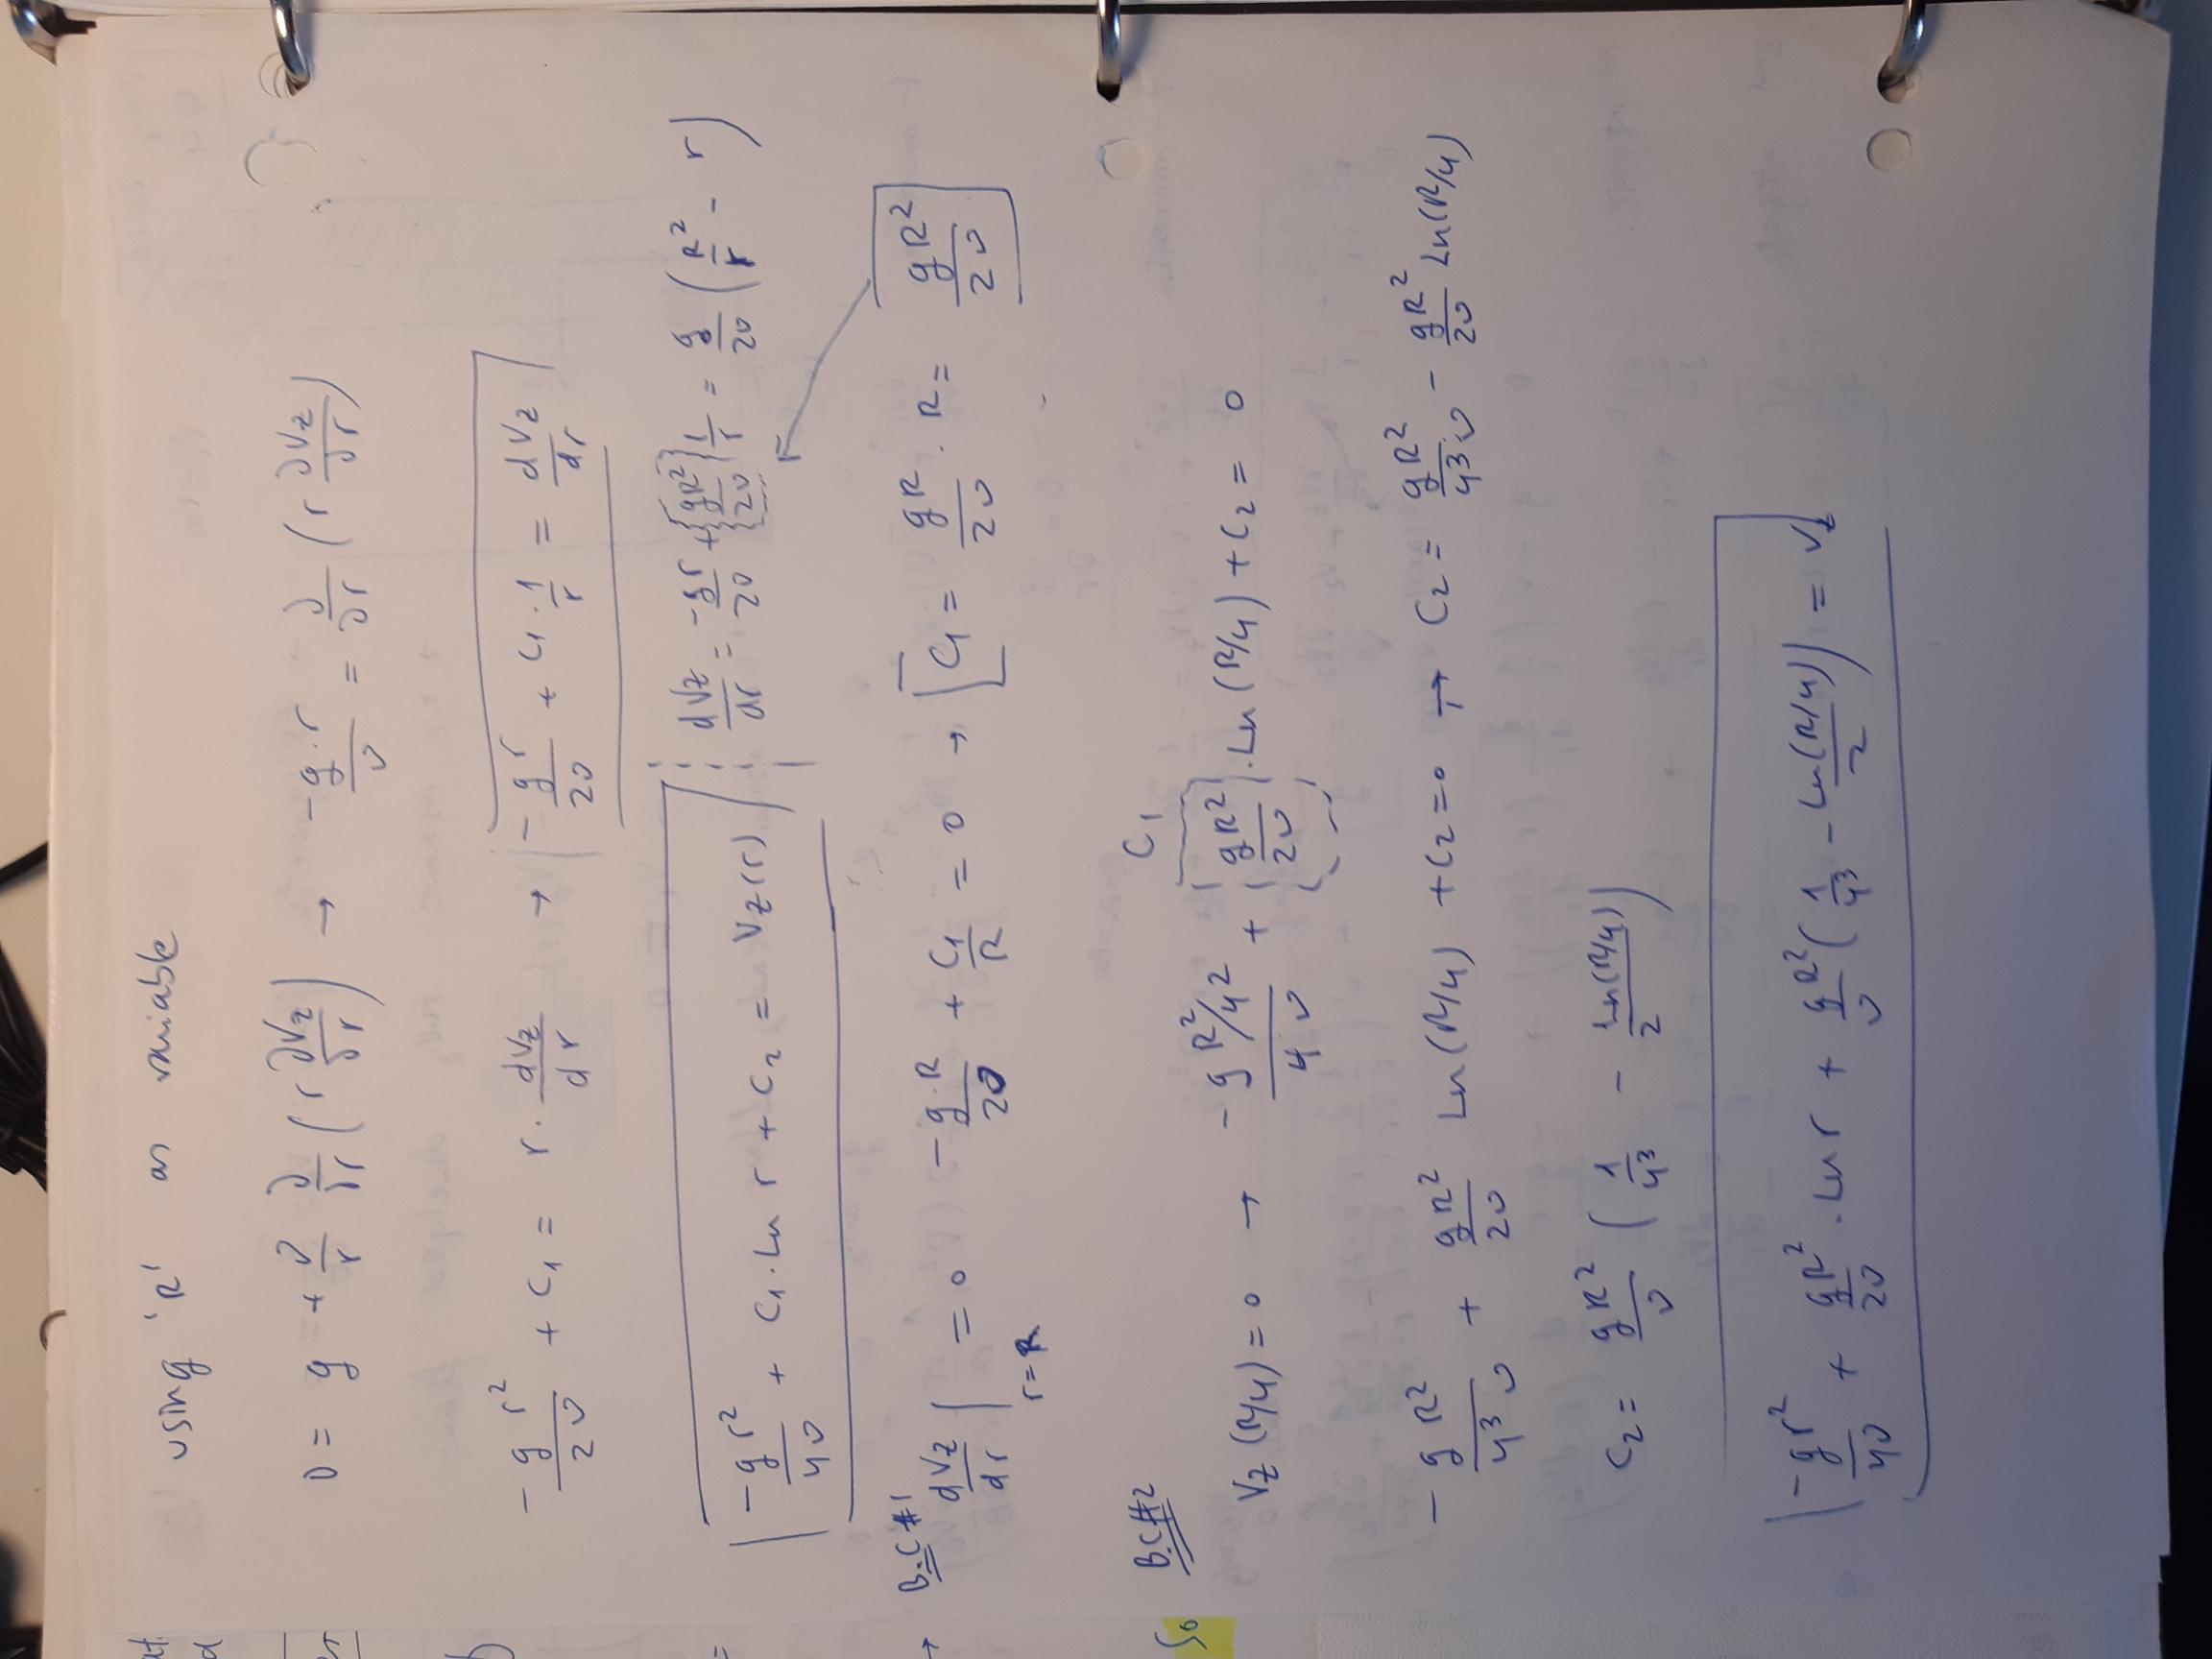 using 'R' as variable
0 = g + ν/r ∂/∂r ( r ∂Vz/∂r ) → -g·r/ν = ∂/∂r ( r ∂Vz/∂r )
-g r²/2ν + C₁ = r · dVz/dr → -g r/2ν + C₁ · 1/r = dVz/dr
-g r²/4ν + C₁·Ln r + C₂ = Vz(r)
dVz/dr = -gr/2ν + {gR²/2ν} 1/r = g/2ν ( R²/r - r )
→ B.C #1
dVz/dr | r=R = 0 -g·R/2ν + C₁/R = 0 → C₁ = gR/2ν · R = gR²/2ν
So
B.C #2
C₁
Vz (R/4) = 0 → -g R²/4²/4ν + gR²/2ν · Ln (R/4) + C₂ = 0
- g R²/4³ν + gR²/2ν Ln(R/4) + C₂ = 0 → C₂ = gR²/4³ν - gR²/2ν Ln(R/4)
C₂ = gR²/ν ( 1/4³ - Ln(R/4)/2 )
-gr²/4ν + gR²/2ν · Ln r + gR²/ν ( 1/4³ - Ln(R/4)/2 ) = Vz